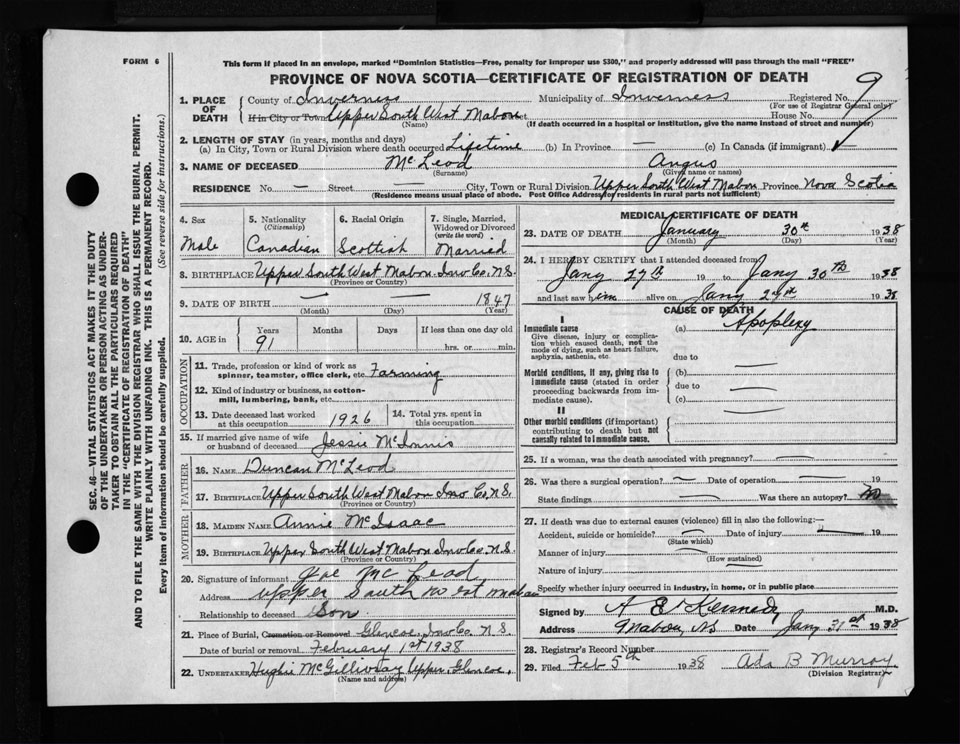 FORM 6
This form if placed in an envelope, marked "Dominion Statistics—Free, penalty for improper use $300," and properly addressed will pass through the mail "FREE"
PROVINCE OF NOVA SCOTIA—CERTIFICATE OF REGISTRATION OF DEATH
SEC. 46—VITAL STATISTICS ACT MAKES IT THE DUTY
OF THE UNDERTAKER OR PERSON ACTING AS UNDER-
TAKER TO OBTAIN ALL THE PARTICULARS REQUIRED
IN THE "CERTIFICATE OF REGISTRATION OF DEATH"
AND TO FILE THE SAME WITH THE DIVISION REGISTRAR WHO SHALL ISSUE THE BURIAL PERMIT.
WRITE PLAINLY WITH UNFADING INK. THIS IS A PERMANENT RECORD.
Every item of information should be carefully supplied. (See reverse side for instructions.)
1. PLACE OF DEATH County of Inverness Municipality of Inverness Registered No. 9
(For use of Registrar General only)
If in City or Town Upper South West Mabou House No.
(Name) (If death occurred in a hospital or institution, give the name instead of street and number)
2. LENGTH OF STAY (in years, months and days)
(a) In City, Town or Rural Division where death occurred Lifetime (b) In Province — (c) In Canada (if immigrant)
3. NAME OF DECEASED McLeod Angus
(Surname) (Given name or names)
RESIDENCE No. — Street — City, Town or Rural Division Upper South West Mabou Province Nova Scotia
(Residence means usual place of abode. Post Office Address for residents in rural parts not sufficient)
4. Sex 5. Nationality (Citizenship) 6. Racial Origin 7. Single, Married, Widowed or Divorced (write the word)
Male Canadian Scottish Married
8. BIRTHPLACE Upper South West Mabou Inv Co. N.S.
(Province or Country)
9. DATE OF BIRTH — — 1847
(Month) (Day) (Year)
10. AGE in Years Months Days If less than one day old
91 hrs. or min.
OCCUPATION
11. Trade, profession or kind of work as
spinner, teamster, office clerk, etc. Farming
12. Kind of industry or business, as cotton-
mill, lumbering, bank, etc.
13. Date deceased last worked at this occupation 1926 14. Total yrs. spent in this occupation
15. If married give name of wife
or husband of deceased Jessie McInnis
FATHER
16. NAME Duncan McLeod
17. BIRTHPLACE Upper South West Mabou Inv Co. N.S.
(Province or Country)
MOTHER
18. MAIDEN NAME Annie McIsaac
19. BIRTHPLACE Upper South West Mabou Inv Co. N.S.
(Province or Country)
20. Signature of informant Joe McLeod
Address Upper South West Mabou
Relationship to deceased Son
21. Place of Burial, Cremation or Removal Glencoe, Inv Co. N.S.
Date of burial or removal February 1st 1938
22. UNDERTAKER Hughie McGillivray Upper Glencoe,
(Name and address)
MEDICAL CERTIFICATE OF DEATH
23. DATE OF DEATH January 30th 1938
(Month) (Day) (Year)
24. I HEREBY CERTIFY that I attended deceased from
Jany 27th 19 to Jany 30th 1938
and last saw him alive on Jany 29th 1938
CAUSE OF DEATH
I
Immediate cause (a) Apoplexy
Give disease, injury or complica-
tion which caused death, not the
mode of dying, such as heart failure,
asphyxia, asthenia, etc.
due to
Morbid conditions, if any, giving rise to (b)
immediate cause (stated in order due to
proceeding backwards from im-
mediate cause). (c)
II
Other morbid conditions (if important)
contributing to death but not
causally related to immediate cause.
25. If a woman, was the death associated with pregnancy?
26. Was there a surgical operation? — Date of operation — 19
State findings — Was there an autopsy? no
27. If death was due to external causes (violence) fill in also the following:—
Accident, suicide or homicide? Date of injury 19
(State which)
Manner of injury
(How sustained)
Nature of injury
Specify whether injury occurred in industry, in home, or in public place
Signed by A E Kennedy M.D.
Address Mabou, NS Date Jany 31st 1938
28. Registrar's Record Number
29. Filed Feb 5th 1938 Ada B Murray.
(Division Registrar)